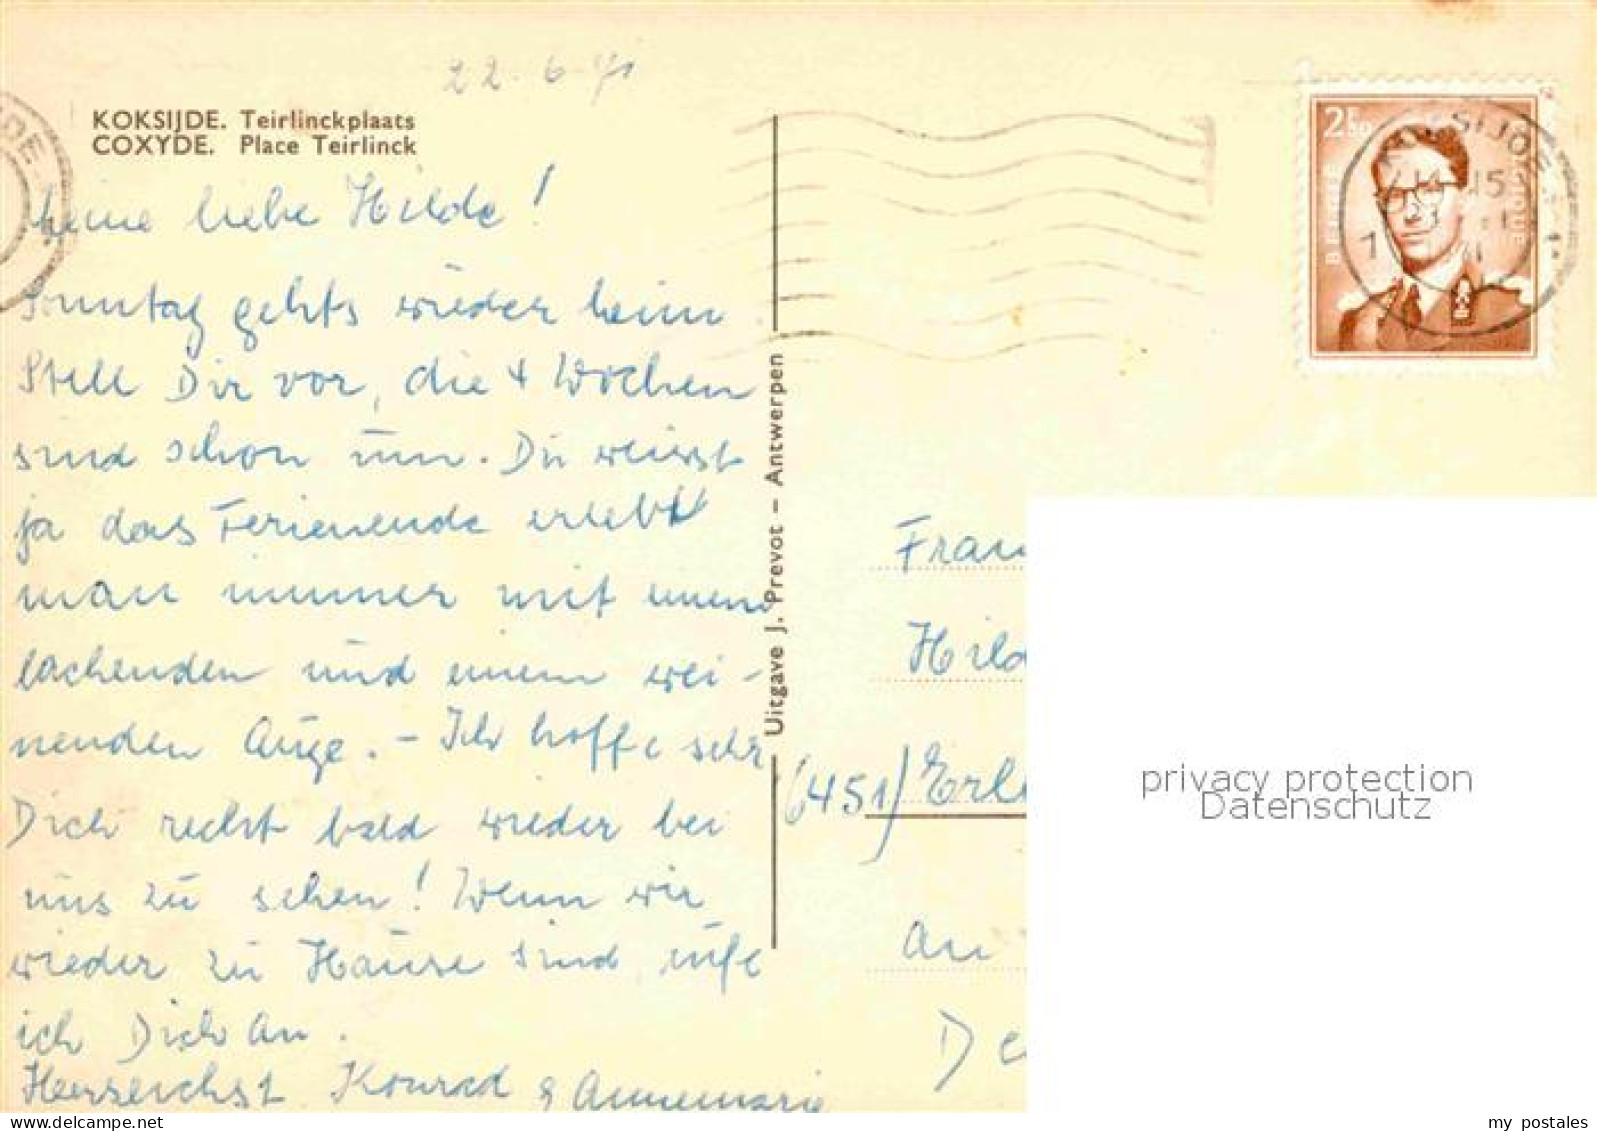 22.6.71
KOKSIJDE. Teirlinckplaats
COXYDE. Place Teirlinck
meine liebe Hilde!
Sonntag gehts wieder heim
Stell Dir vor, die 4 Wochen
sind schon um. Du weisst
ja das Ferienende erlebt
man immer mit einem
lachenden und einem wei-
nenden Auge. - Ich hoffe sehr
Dich recht bald wieder bei
uns zu sehen! Wenn wir
wieder zu Hause sind, rufe
ich Dich an.
Herzlichst Konrad & Annemarie
Uitgave J. Prevot - Antwerpen
2F50
BELGIE BELGIQUE
KOKSIJDE
15
Frau
Hild
(6451) Erl
An
De
privacy protection
Datenschutz
my postales